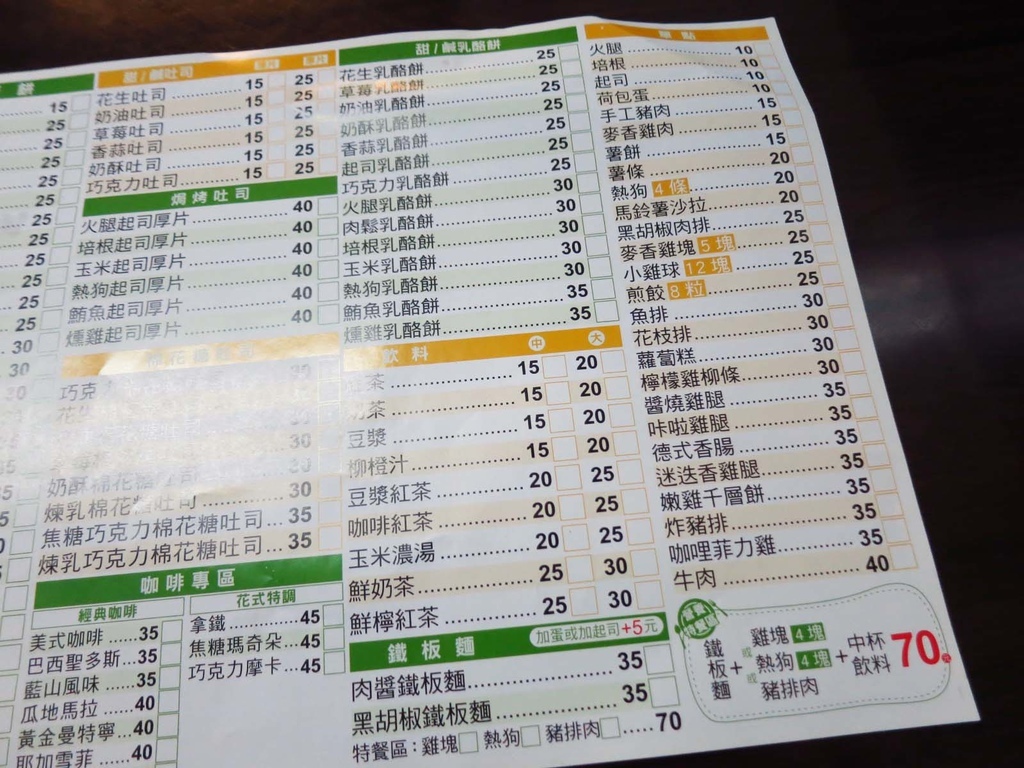 餅
15
25
25
25
25
25
25
25
25
25
25
30
30
甜/鹹吐司
花生吐司 15 25
奶油吐司 15 25
草莓吐司 15 25
香蒜吐司 15 25
奶酥吐司 15 25
巧克力吐司 15 25
焗烤吐司
火腿起司厚片 40
培根起司厚片 40
玉米起司厚片 40
熱狗起司厚片 40
鮪魚起司厚片 40
燻雞起司厚片 40
巧克力
奶酥棉花糖吐司
煉乳棉花糖吐司 30
焦糖巧克力棉花糖吐司 35
煉乳巧克力棉花糖吐司 35
咖啡專區
經典咖啡
美式咖啡 35
巴西聖多斯 35
藍山風味 35
瓜地馬拉 40
黃金曼特寧 40
耶加雪菲 40
花式特調
拿鐵 45
焦糖瑪奇朵 45
巧克力摩卡 45
甜/鹹乳酪餅
花生乳酪餅 25
草莓乳酪餅 25
奶油乳酪餅 25
奶酥乳酪餅 25
香蒜乳酪餅 25
起司乳酪餅 25
巧克力乳酪餅 25
火腿乳酪餅 30
肉鬆乳酪餅 30
培根乳酪餅 30
玉米乳酪餅 30
熱狗乳酪餅 30
鮪魚乳酪餅 35
燻雞乳酪餅 35
飲料 中 大
茶 15 20
奶茶 15 20
豆漿 15 20
柳橙汁 15 20
豆漿紅茶 20 25
咖啡紅茶 20 25
玉米濃湯 20 25
鮮奶茶 25 30
鮮檸紅茶 25 30
鐵板麵 加蛋或加起司+5元
肉醬鐵板麵 35
黑胡椒鐵板麵 35
特餐區:雞塊 熱狗 豬排肉 70
單點
火腿 10
培根 10
起司 10
荷包蛋 10
手工豬肉 15
麥香雞肉 15
薯餅 15
薯條 20
熱狗4條 20
馬鈴薯沙拉 20
黑胡椒肉排 25
麥香雞塊5塊 25
小雞球12塊 25
煎餃8粒 25
魚排 30
花枝排 30
蘿蔔糕 30
檸檬雞柳條 30
醬燒雞腿 35
咔啦雞腿 35
德式香腸 35
迷迭香雞腿 35
嫩雞千層餅 35
炸豬排 35
咖哩菲力雞 35
牛肉 40
鐵板麵+
雞塊4塊
或熱狗4塊
或豬排肉
+中杯飲料
70